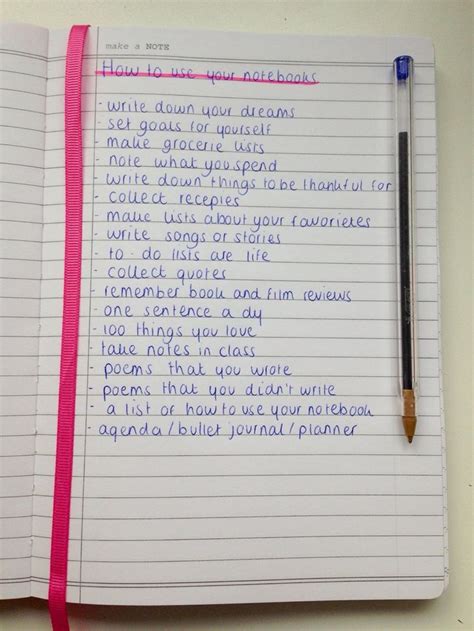 make a NOTE
How to use your notebooks
- write down your dreams
- set goals for yourself
- make grocerie lists
- note what you spend
- write down things to be thankful for
- collect recepies
- make lists about your favorietes
- write songs or stories
- to-do lists are life
- collect quotes
- remember book and film reviews
- one sentence a dy
- 100 things you love
- take notes in class
- poems that you wrote
- poems that you didn't write
- a list of how to use your notebook
- agenda/bullet journal/planner